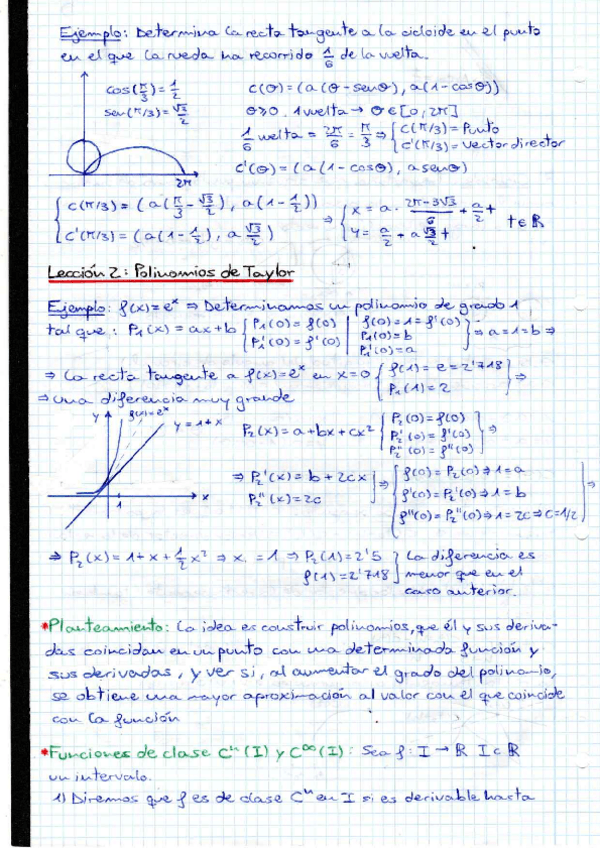 Ejemplo: Determina la recta tangente a la cicloide en el punto
en el que la rueda ha recorrido 1/6 de la vuelta.
cos(π/3) = 1/2
sen(π/3) = √3/2
2π
C(θ) = (a(θ - senθ), a(1 - cosθ))
θ ≥ 0. 1 vuelta → θ ∈ [0, 2π]
1/6 vuelta = 2π/6 = π/3 ⇒ { C(π/3) = Punto
C'(π/3) = Vector director
C'(θ) = (a(1 - cosθ), a senθ)
{ C(π/3) = (a(π/3 - √3/2), a(1 - 1/2))
C'(π/3) = (a(1 - 1/2), a √3/2)
⇒ { x = a · (2π - 3√3)/6 + a/2 t
y = a/2 + a √3/2 t
t ∈ ℝ
Lección 2: Polinomios de Taylor
Ejemplo: f(x) = eˣ ⇒ Determinamos un polinomio de grado 1
tal que: P₁(x) = ax + b { P₁(0) = f(0) | f(0) = 1 = f'(0)
P₁'(0) = f'(0) | P₁(0) = b
P₁'(0) = a } ⇒ a = 1 = b ⇒
⇒ La recta tangente a f(x) = eˣ en x = 0 { f(1) = e = 2'718
P₁(1) = 2 } ⇒
⇒ Una diferencia muy grande
y
f(x) = eˣ
y = 1 + x
x
1
P₂(x) = a + bx + cx² { P₂(0) = f(0)
P₂'(0) = f'(0)
P₂''(0) = f''(0) } ⇒
⇒ P₂'(x) = b + 2cx
P₂''(x) = 2c } ⇒ { f(0) = P₂(0) ⇒ 1 = a
f'(0) = P₂'(0) ⇒ 1 = b
f''(0) = P₂''(0) ⇒ 1 = 2c ⇒ c = 1/2 } ⇒
⇒ P₂(x) = 1 + x + 1/2 x² ⇒ x = 1 ⇒ P₂(1) = 2'5
f(1) = 2'718 } La diferencia es
menor que en el
caso anterior.
*Planteamiento: La idea es construir polinomios, que él y sus deriva-
das coincidan en un punto con una determinada función y
sus derivadas, y ver si, al aumentar el grado del polinomio,
se obtiene una mayor aproximación al valor con el que coincide
con la función
*Funciones de clase Cⁿ(I) y C^∞(I): Sea f: I → ℝ I ⊂ ℝ
un intervalo.
1) Diremos que f es de clase Cⁿ en I si es derivable hasta